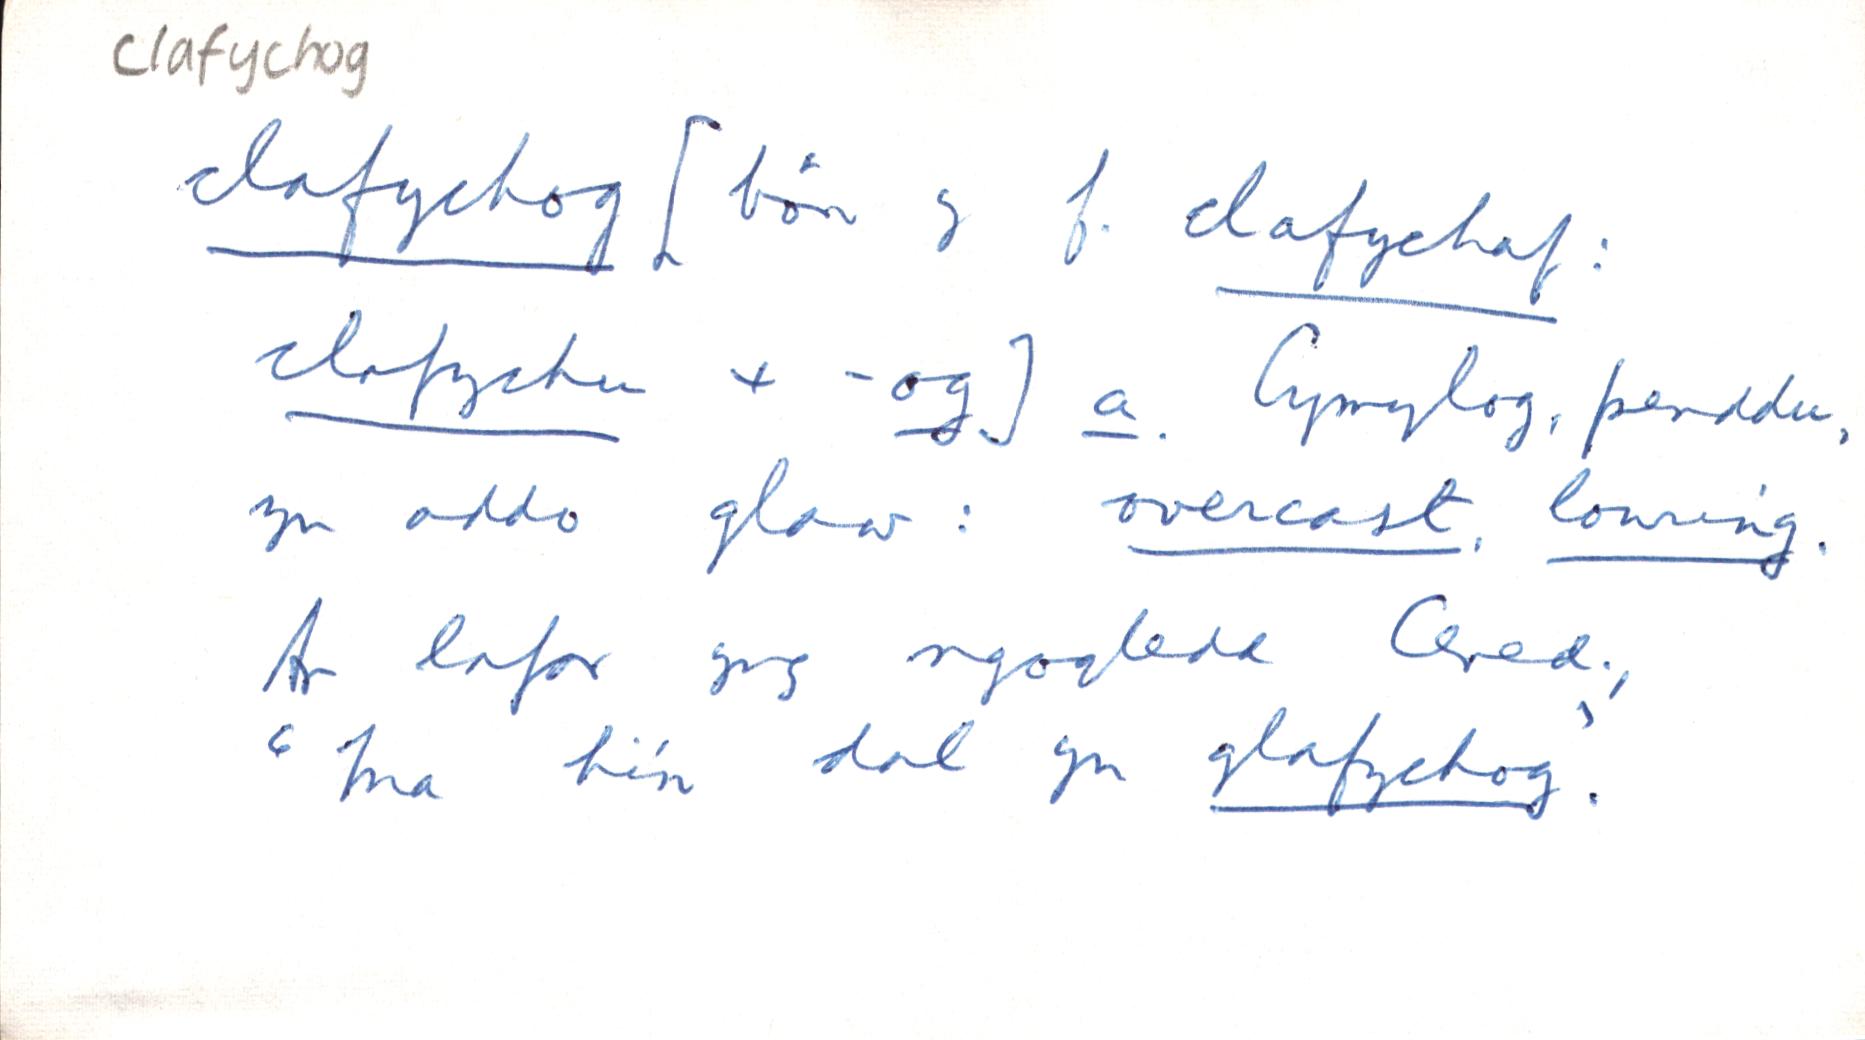 clafychog
clafychog [bôn y f. clafychaf:
clafychu + -og] a. Cymylog, penddu,
yn addo glaw: overcast, lowring.
Ar lafar yng ngogledd Cered.,
‘Ma hi'n dal yn glafychog’.